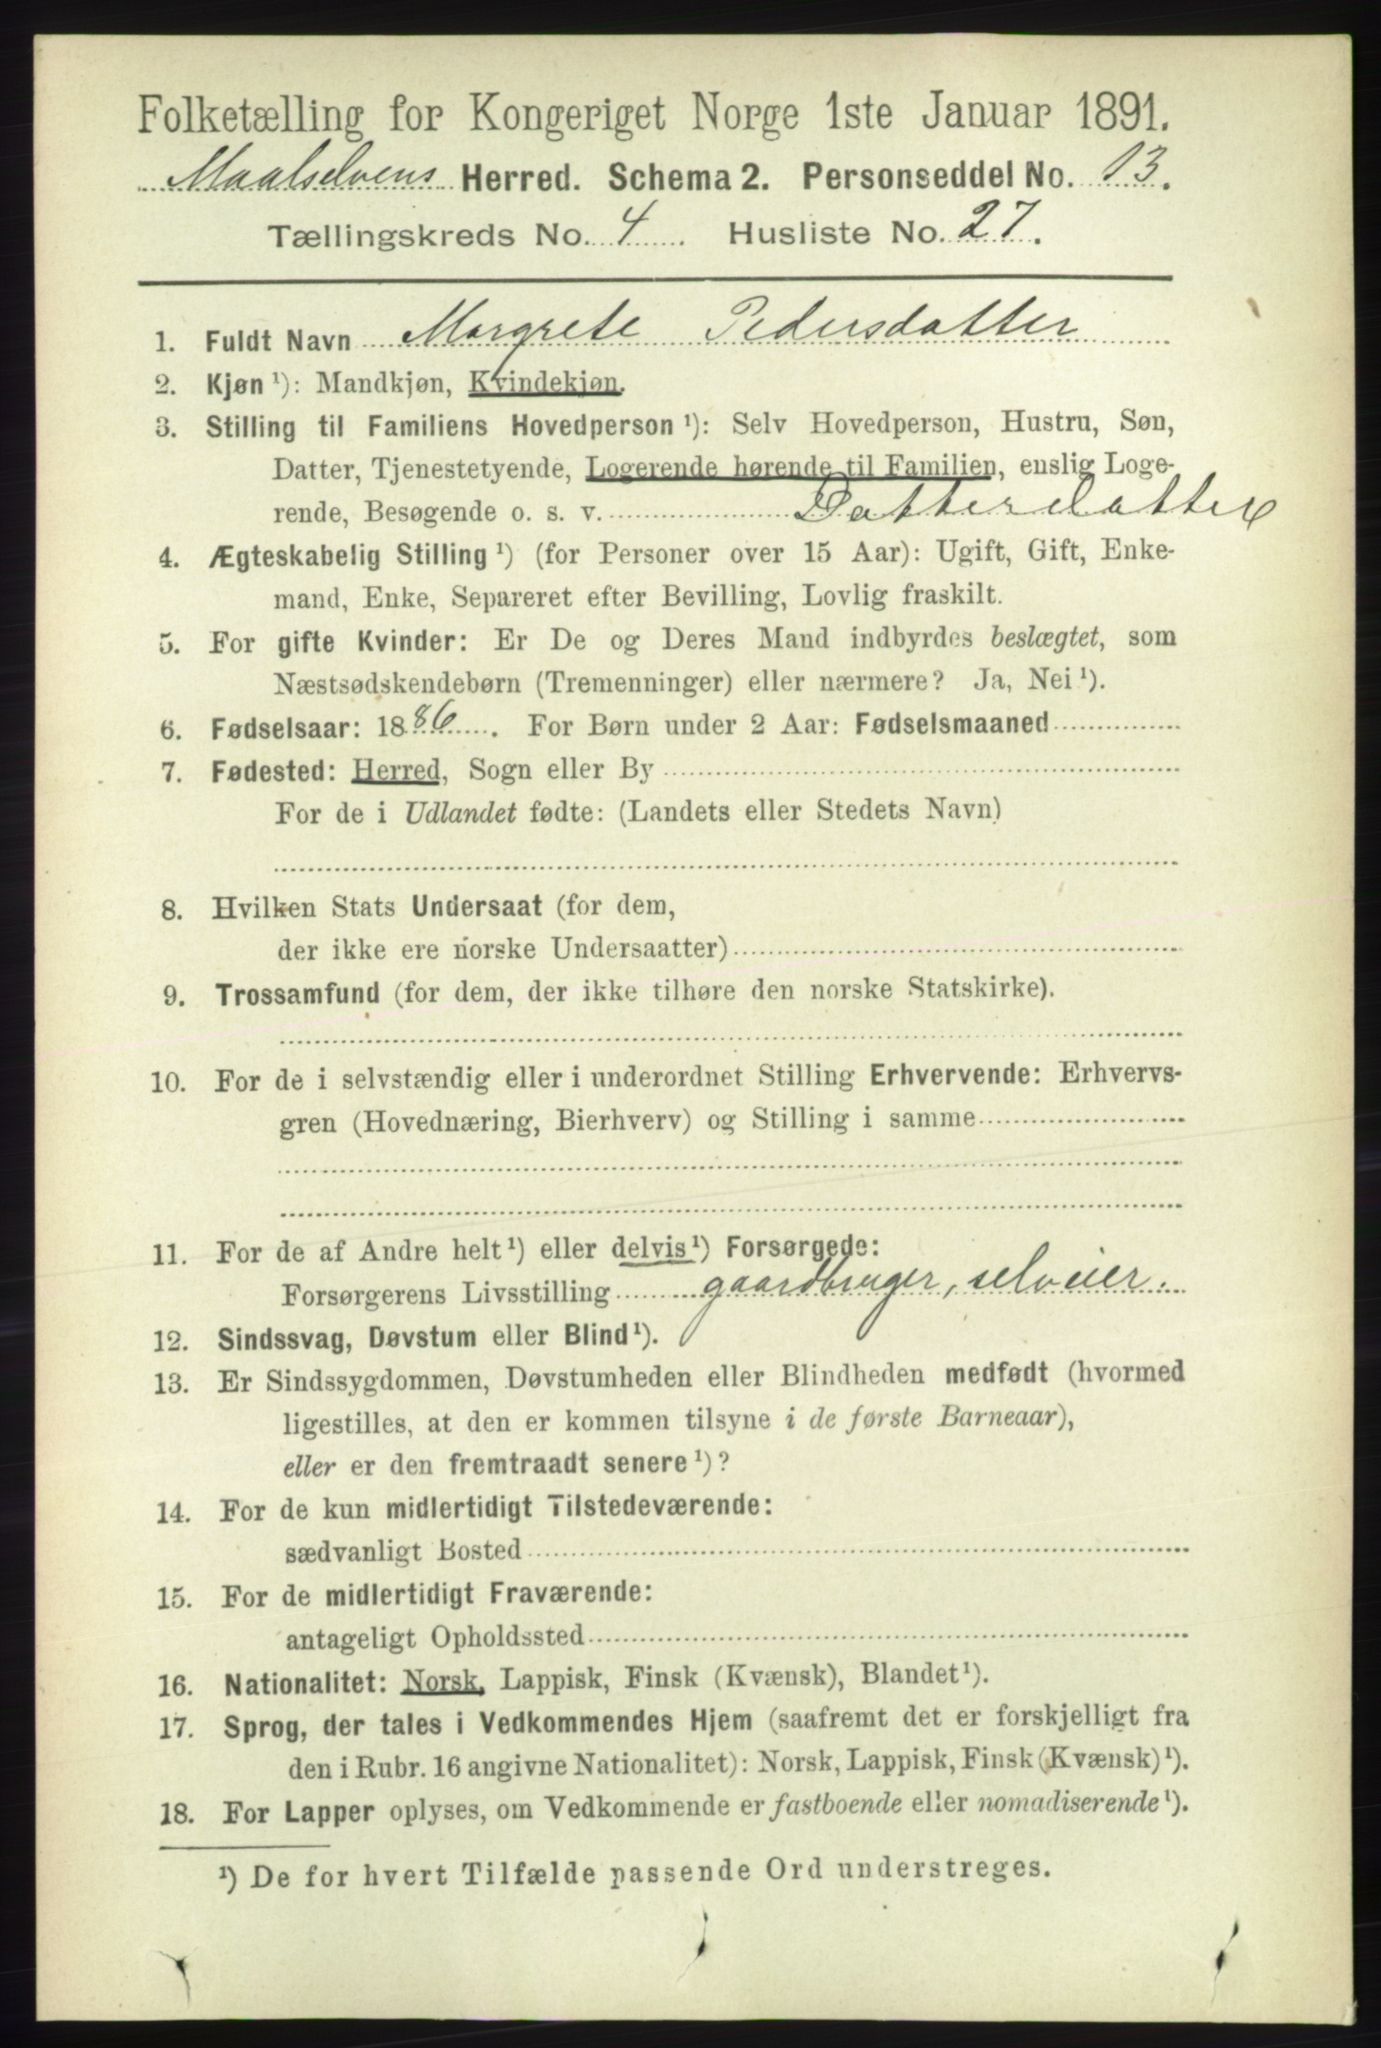 Folketælling for Kongeriget Norge 1ste Januar 1891.
Maalselvens Herred. Schema 2. Personseddel No. 13.
Tællingskreds No. 4. Husliste No. 27.
1. Fuldt Navn Margrete Pedersdatter
2. Kjøn ¹): Mandkjøn, Kvindekjøn.
3. Stilling til Familiens Hovedperson ¹): Selv Hovedperson, Hustru, Søn,
Datter, Tjenestetyende, Logerende hørende til Familien, enslig Loge-
rende, Besøgende o. s. v. Datterdatter
4. Ægteskabelig Stilling ¹) (for Personer over 15 Aar): Ugift, Gift, Enke-
mand, Enke, Separeret efter Bevilling, Lovlig fraskilt.
5. For gifte Kvinder: Er De og Deres Mand indbyrdes beslægtet, som
Næstsødskendebørn (Tremenninger) eller nærmere? Ja, Nei ¹).
6. Fødselsaar: 1886. For Børn under 2 Aar: Fødselsmaaned
7. Fødested: Herred, Sogn eller By
For de i Udlandet fødte: (Landets eller Stedets Navn)
8. Hvilken Stats Undersaat (for dem,
der ikke ere norske Undersaatter)
9. Trossamfund (for dem, der ikke tilhøre den norske Statskirke).
10. For de i selvstændig eller i underordnet Stilling Erhvervende: Erhvervs-
gren (Hovednæring, Bierhverv) og Stilling i samme
11. For de af Andre helt ¹) eller delvis ¹) Forsørgede:
Forsørgerens Livsstilling gaardbruger, selveier.
12. Sindssvag, Døvstum eller Blind ¹).
13. Er Sindssygdommen, Døvstumheden eller Blindheden medfødt (hvormed
ligestilles, at den er kommen tilsyne i de første Barneaar),
eller er den fremtraadt senere ¹)?
14. For de kun midlertidigt Tilstedeværende:
sædvanligt Bosted
15. For de midlertidigt Fraværende:
antageligt Opholdssted
16. Nationalitet: Norsk, Lappisk, Finsk (Kvænsk), Blandet ¹).
17. Sprog, der tales i Vedkommendes Hjem (saafremt det er forskjelligt fra
den i Rubr. 16 angivne Nationalitet): Norsk, Lappisk, Finsk (Kvænsk) ¹).
18. For Lapper oplyses, om Vedkommende er fastboende eller nomadiserende ¹).
¹) De for hvert Tilfælde passende Ord understreges.